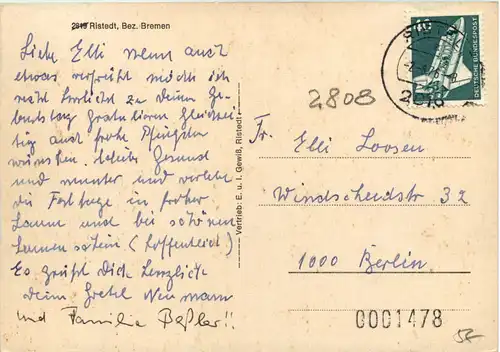 2819 Ristedt, Bez. Bremen
Liebe Elli wenn auch
etwas verfrüht möcht ich
recht herzlich zu Deinem Ge-
burtstag Gratulieren Gleichzei-
tig auch frohe Pfingsten
wünschen. bleibe Gesund
und munter und verlebe
die Festtage in froher
Laune und bei schönen
Sonnenschein (hoffentlich)
Es grüßt Dich herzlich
deine Gretel Neumann
und Familie Beßler!!
Vertrieb: E. u. I. Gewiß, Ristedt
DEUTSCHE BUNDESPOST
2808
Fr.
Elli Loosen
Windscheidstr 32
1000 Berlin
0001478